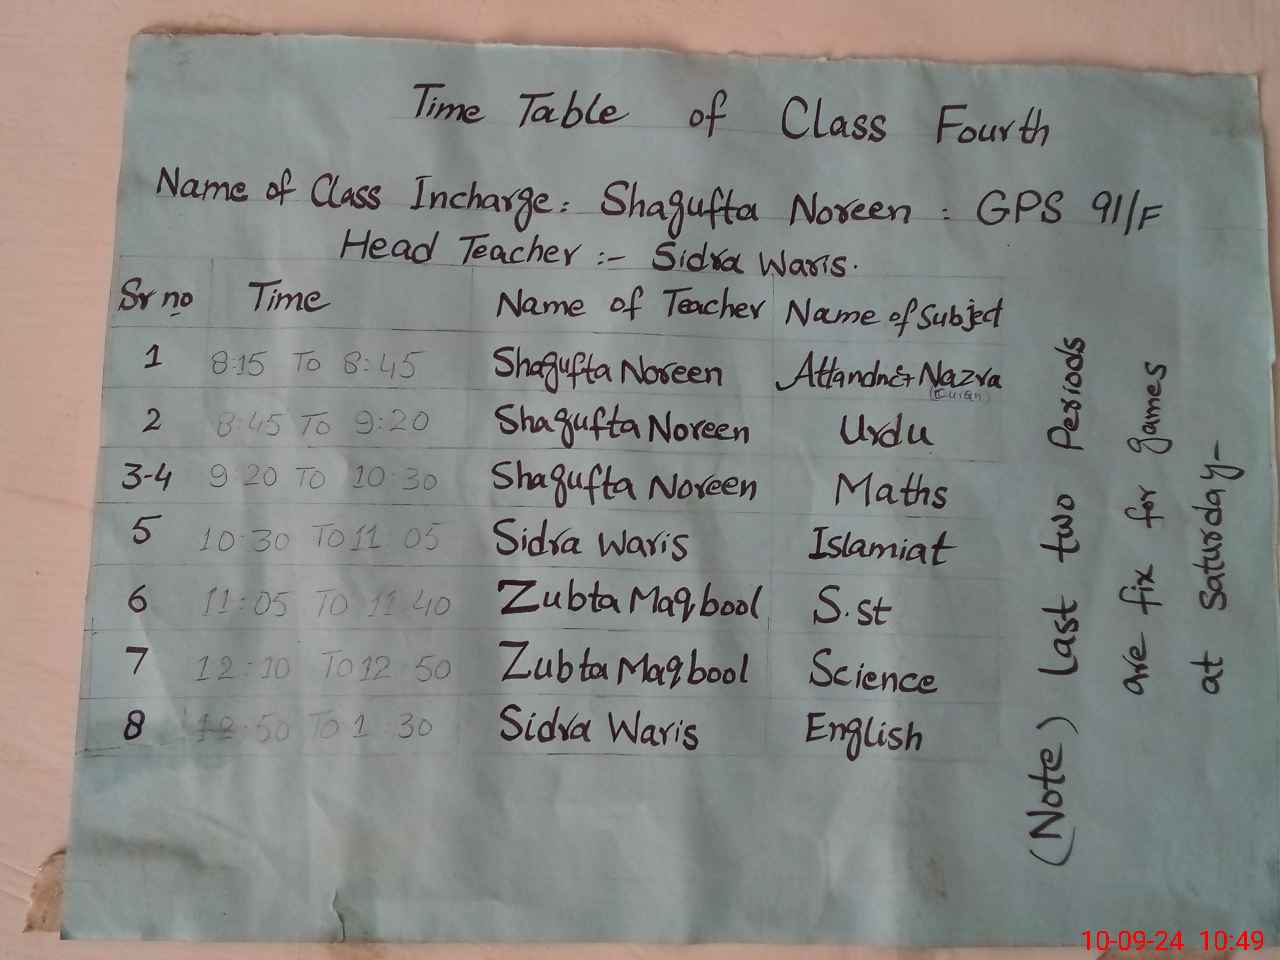 Time Table of Class Fourth
Name of Class Incharge: Shagufta Noreen : GPS 91/F
Head Teacher :- Sidra Waris.
Sr no Time Name of Teacher Name of Subject
1 8:15 To 8:45 Shagufta Noreen Nazra
2 8:45 To 9:20 Shagufta Noreen Urdu
3-4 9 20 TO 10:30 Shagufta Noreen Maths
5 10:30 TO 11 05 Sidra Waris Islamiat
6 11:05 TO 11 40 Zubta Maqbool S.st
7 12:10 TO 12:50 Zubta Maqbool Science
8 12:50 To 1:30 Sidra Waris English
(Note) Last two Periods
are fix for games
at Saturday-
10-09-24 10:49